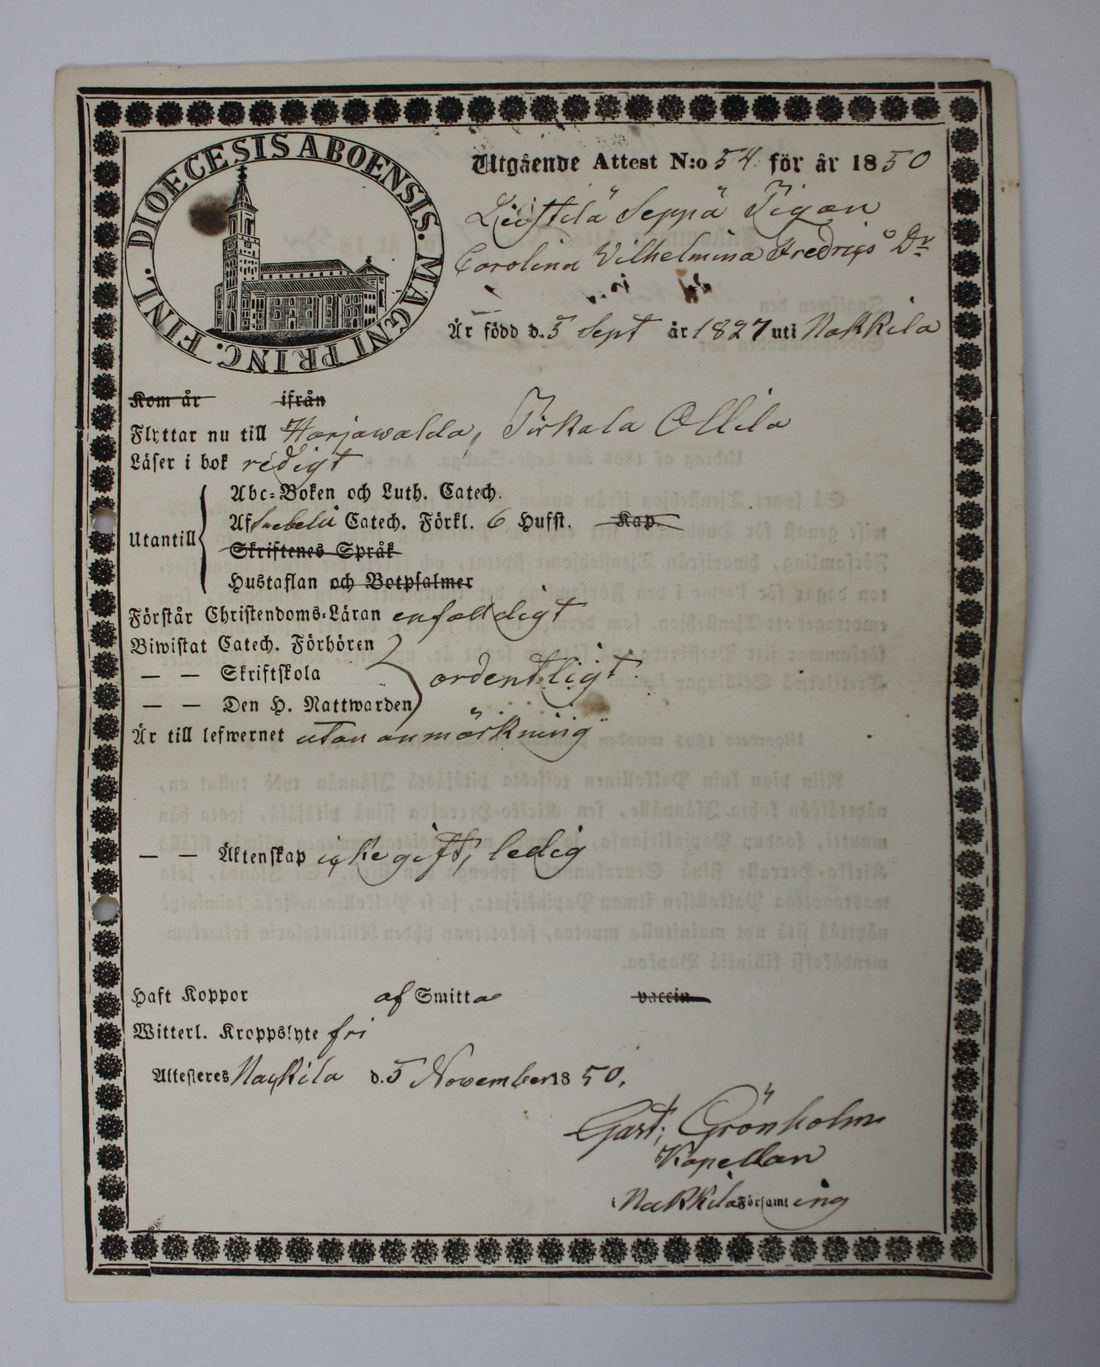 DIOECESIS ABOENSIS. MAGNI PRINC. FINL.
Utgående Attest N:o 54 för år 1850
Leistilä Seppä Pigan
Carolina Wilhelmina Fredrigs Dr
Är född d. 5 Sept år 1827 uti Nakkila
Kom år ifrån
Flyttar nu till Harjawalda, Pirkala Ollila
Läser i bok redigt
Utantill
Abc-Boken och Luth. Catech.
Af Svebelii Catech. Förkl. 6 Hufst. Kap.
Skriftenes Språk
Hustaflan och Botpsalmer
Förstår Christendoms-Läran enfaldigt
Biwistat Catech. Förhören
— — Skriftskola
ordentligt
— — Den H. Nattwarden
Är till lefwernet utan anmärkning
— — Äktenskap icke gift, ledig
Haft Koppor af Smitta vaccin
Witterl. Kroppslyte fri
Attesteres Nackila d. 5 November 1850.
Gust. Grönholm
Kapellan
i Nakkila Församling